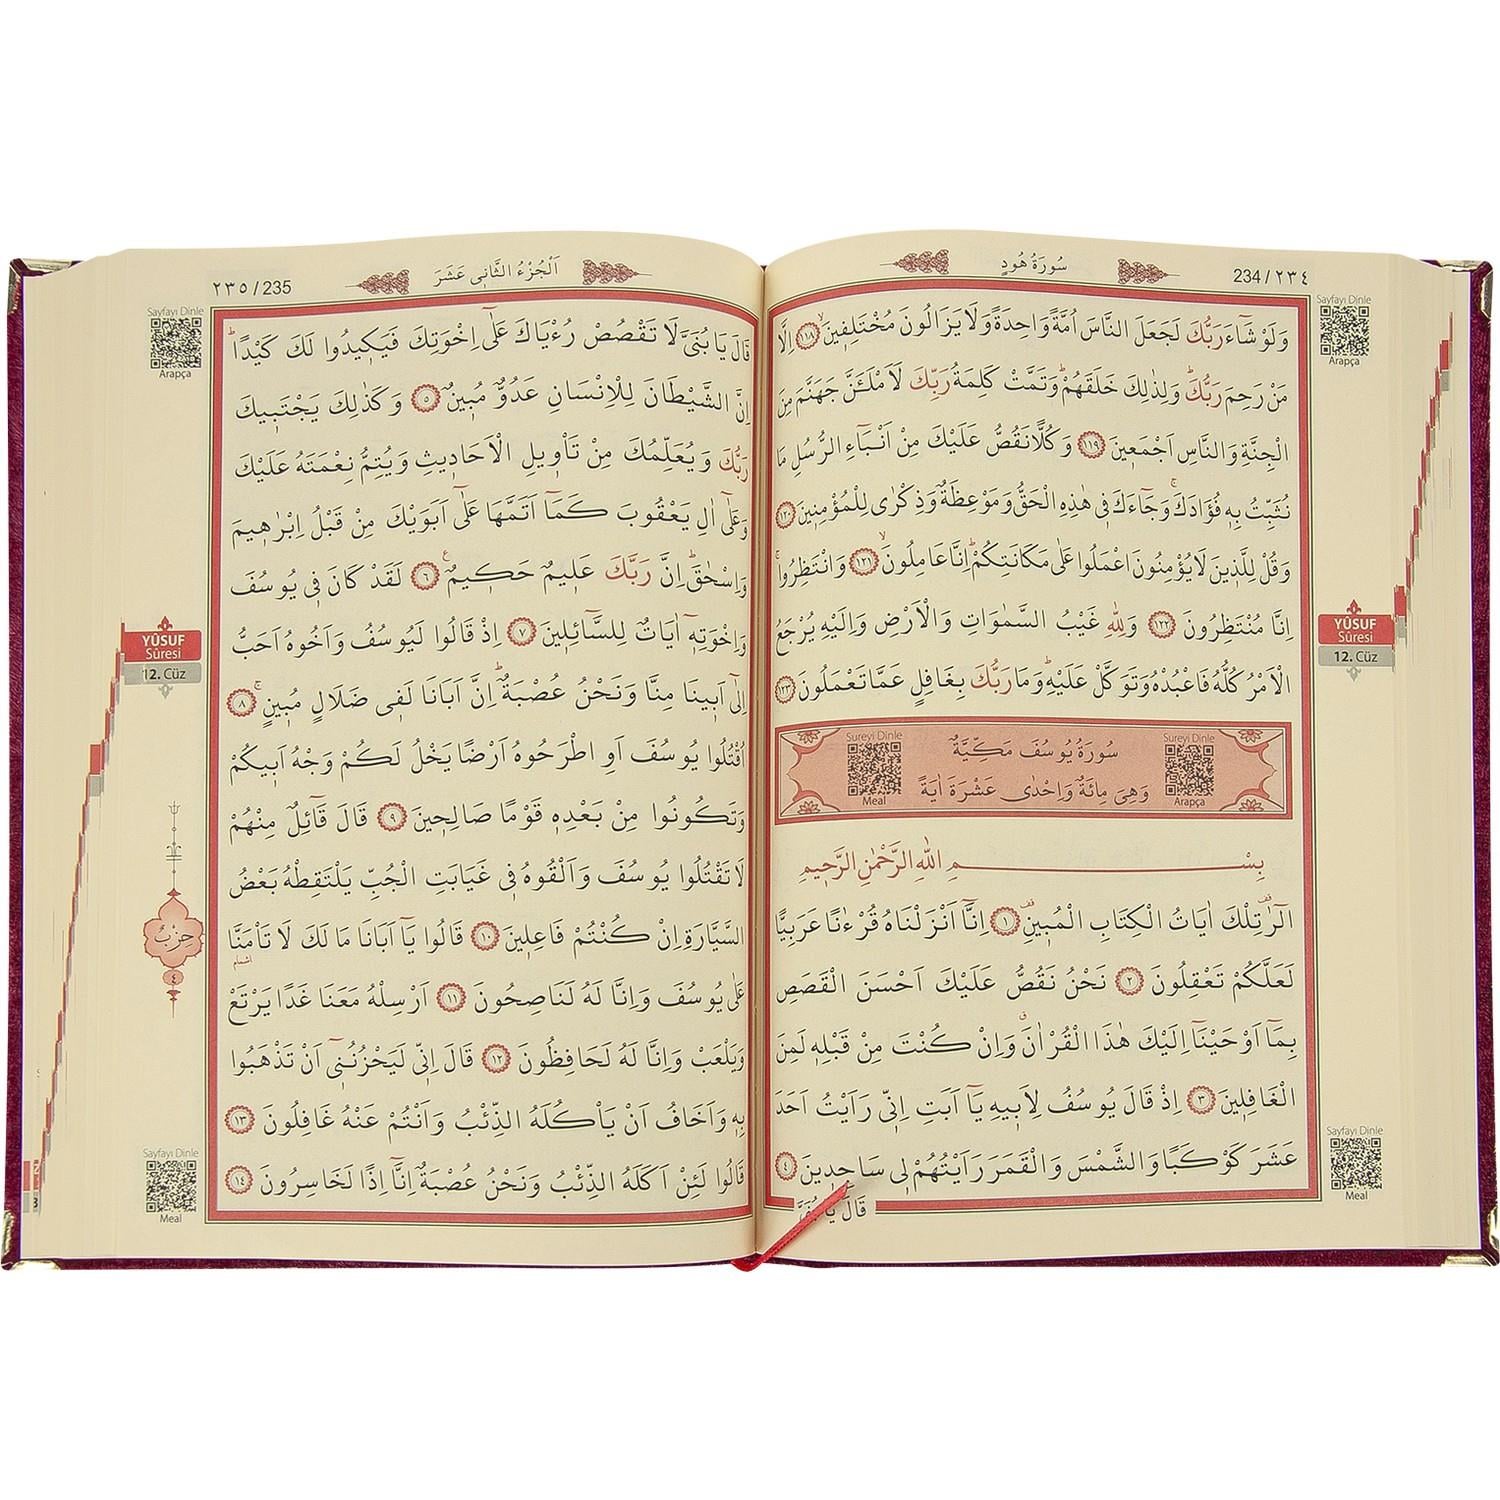 سُورَةُ هُودٍ
234 / ٢٣٤
وَلَوْ شَٓاءَ رَبُّكَ لَجَعَلَ النَّاسَ اُمَّةً وَاحِدَةً وَلَا يَزَالُونَ مُخْتَلِف۪ينَۙ ﴿١١٨﴾ اِلَّا
مَنْ رَحِمَ رَبُّكَۜ وَلِذٰلِكَ خَلَقَهُمْۜ وَتَمَّتْ كَلِمَةُ رَبِّكَ لَاَمْلَـَٔنَّ جَهَنَّمَ مِنَ
الْجِنَّةِ وَالنَّاسِ اَجْمَع۪ينَ ﴿١١٩﴾ وَكُلًّا نَقُصُّ عَلَيْكَ مِنْ اَنْبَٓاءِ الرُّسُلِ مَا
نُثَبِّتُ بِه۪ فُؤٰادَكَۚ وَجَٓاءَكَ ف۪ي هٰذِهِ الْحَقُّ وَمَوْعِظَةٌ وَذِكْرٰى لِلْمُؤْمِن۪ينَ ﴿١٢٠﴾
وَقُلْ لِلَّذ۪ينَ لَا يُؤْمِنُونَ اعْمَلُوا عَلٰى مَكَانَتِكُمْۜ اِنَّا عَامِلُونَۙ ﴿١٢١﴾ وَانْتَظِرُواۚ
اِنَّا مُنْتَظِرُونَ ﴿١٢٢﴾ وَلِلّٰهِ غَيْبُ السَّمٰوَاتِ وَالْاَرْضِ وَاِلَيْهِ يُرْجَعُ
الْاَمْرُ كُلُّهُ فَاعْبُدْهُ وَتَوَكَّلْ عَلَيْهِۜ وَمَا رَبُّكَ بِغَافِلٍ عَمَّا تَعْمَلُونَ ﴿١٢٣﴾
Sureyi Dinle
Meal
سُورَةُ يُوسُفَ مَكِّيَّةٌ
وَهِيَ مِائَةٌ وَاِحْدٰى عَشْرَةَ اٰيَةً
Sureyi Dinle
Arapça
بِسْمِ اللّٰهِ الرَّحْمٰنِ الرَّح۪يمِ
الٓرٰ۠ تِلْكَ اٰيَاتُ الْكِتَابِ الْمُب۪ينِ۠ ﴿١﴾ اِنَّٓا اَنْزَلْنَاهُ قُرْءٰنًا عَرَبِيًّا
لَعَلَّكُمْ تَعْقِلُونَ ﴿٢﴾ نَحْنُ نَقُصُّ عَلَيْكَ اَحْسَنَ الْقَصَصِ
بِمَٓا اَوْحَيْنَٓا اِلَيْكَ هٰذَا الْقُرْاٰنَۗ وَاِنْ كُنْتَ مِنْ قَبْلِه۪ لَمِنَ
الْغَافِل۪ينَ ﴿٣﴾ اِذْ قَالَ يُوسُفُ لِاَب۪يهِ يَٓا اَبَتِ اِنّ۪ي رَاَيْتُ اَحَدَ
عَشَرَ كَوْكَبًا وَالشَّمْسَ وَالْقَمَرَ رَاَيْتُهُمْ ل۪ي سَاجِد۪ينَ ﴿٤﴾
قَالَ
Sayfayı Dinle
Arapça
YÛSUF
Sûresi
12. Cüz
Sayfayı Dinle
Meal
اَلْجُزْءُ الثَّان۪ي عَشَرَ
٢٣٥ / 235
قَالَ يَا بُنَيَّ لَا تَقْصُصْ رُءْيَاكَ عَلٰٓى اِخْوَتِكَ فَيَك۪يدُوا لَكَ كَيْدًاۜ
اِنَّ الشَّيْطَانَ لِلْاِنْسَانِ عَدُوٌّ مُب۪ينٌ ﴿٥﴾ وَكَذٰلِكَ يَجْتَب۪يكَ
رَبُّكَ وَيُعَلِّمُكَ مِنْ تَأْو۪يلِ الْاَحَاد۪يثِ وَيُتِمُّ نِعْمَتَهُ عَلَيْكَ
وَعَلٰٓى اٰلِ يَعْقُوبَ كَمَٓا اَتَمَّهَا عَلٰٓى اَبَوَيْكَ مِنْ قَبْلُ اِبْرٰه۪يمَ
وَاِسْحٰقَۜ اِنَّ رَبَّكَ عَل۪يمٌ حَك۪يمٌ۟ ﴿٦﴾ لَقَدْ كَانَ ف۪ي يُوسُفَ
وَاِخْوَتِه۪ٓ اٰيَاتٌ لِلسَّٓائِل۪ينَ ﴿٧﴾ اِذْ قَالُوا لَيُوسُفُ وَاَخُوهُ اَحَبُّ
اِلٰٓى اَب۪ينَا مِنَّا وَنَحْنُ عُصْبَةٌۜ اِنَّ اَبَانَا لَف۪ي ضَلَالٍ مُب۪ينٍۚ ﴿٨﴾
اُقْتُلُوا يُوسُفَ اَوِ اطْرَحُوهُ اَرْضًا يَخْلُ لَكُمْ وَجْهُ اَب۪يكُمْ
وَتَكُونُوا مِنْ بَعْدِه۪ قَوْمًا صَالِح۪ينَ ﴿٩﴾ قَالَ قَٓائِلٌ مِنْهُمْ
لَا تَقْتُلُوا يُوسُفَ وَاَلْقُوهُ ف۪ي غَيَابَتِ الْجُبِّ يَلْتَقِطْهُ بَعْضُ
السَّيَّارَةِ اِنْ كُنْتُمْ فَاعِل۪ينَ ﴿١٠﴾ قَالُوا يَٓا اَبَانَا مَا لَكَ لَا تَأْمَنَّا
اشمام
عَلٰى يُوسُفَ وَاِنَّا لَهُ لَنَاصِحُونَ ﴿١١﴾ اَرْسِلْهُ مَعَنَا غَدًا يَرْتَعْ
وَيَلْعَبْ وَاِنَّا لَهُ لَحَافِظُونَ ﴿١٢﴾ قَالَ اِنّ۪ي لَيَحْزُنُن۪ٓي اَنْ تَذْهَبُوا
بِه۪ وَاَخَافُ اَنْ يَأْكُلَهُ الذِّئْبُ وَاَنْتُمْ عَنْهُ غَافِلُونَ ﴿١٣﴾
قَالُوا لَئِنْ اَكَلَهُ الذِّئْبُ وَنَحْنُ عُصْبَةٌ اِنَّٓا اِذًا لَخَاسِرُونَ ﴿١٤﴾
Sayfayı Dinle
Arapça
YÛSUF
Sûresi
12. Cüz
حِزْبُ
٤
Sayfayı Dinle
Meal